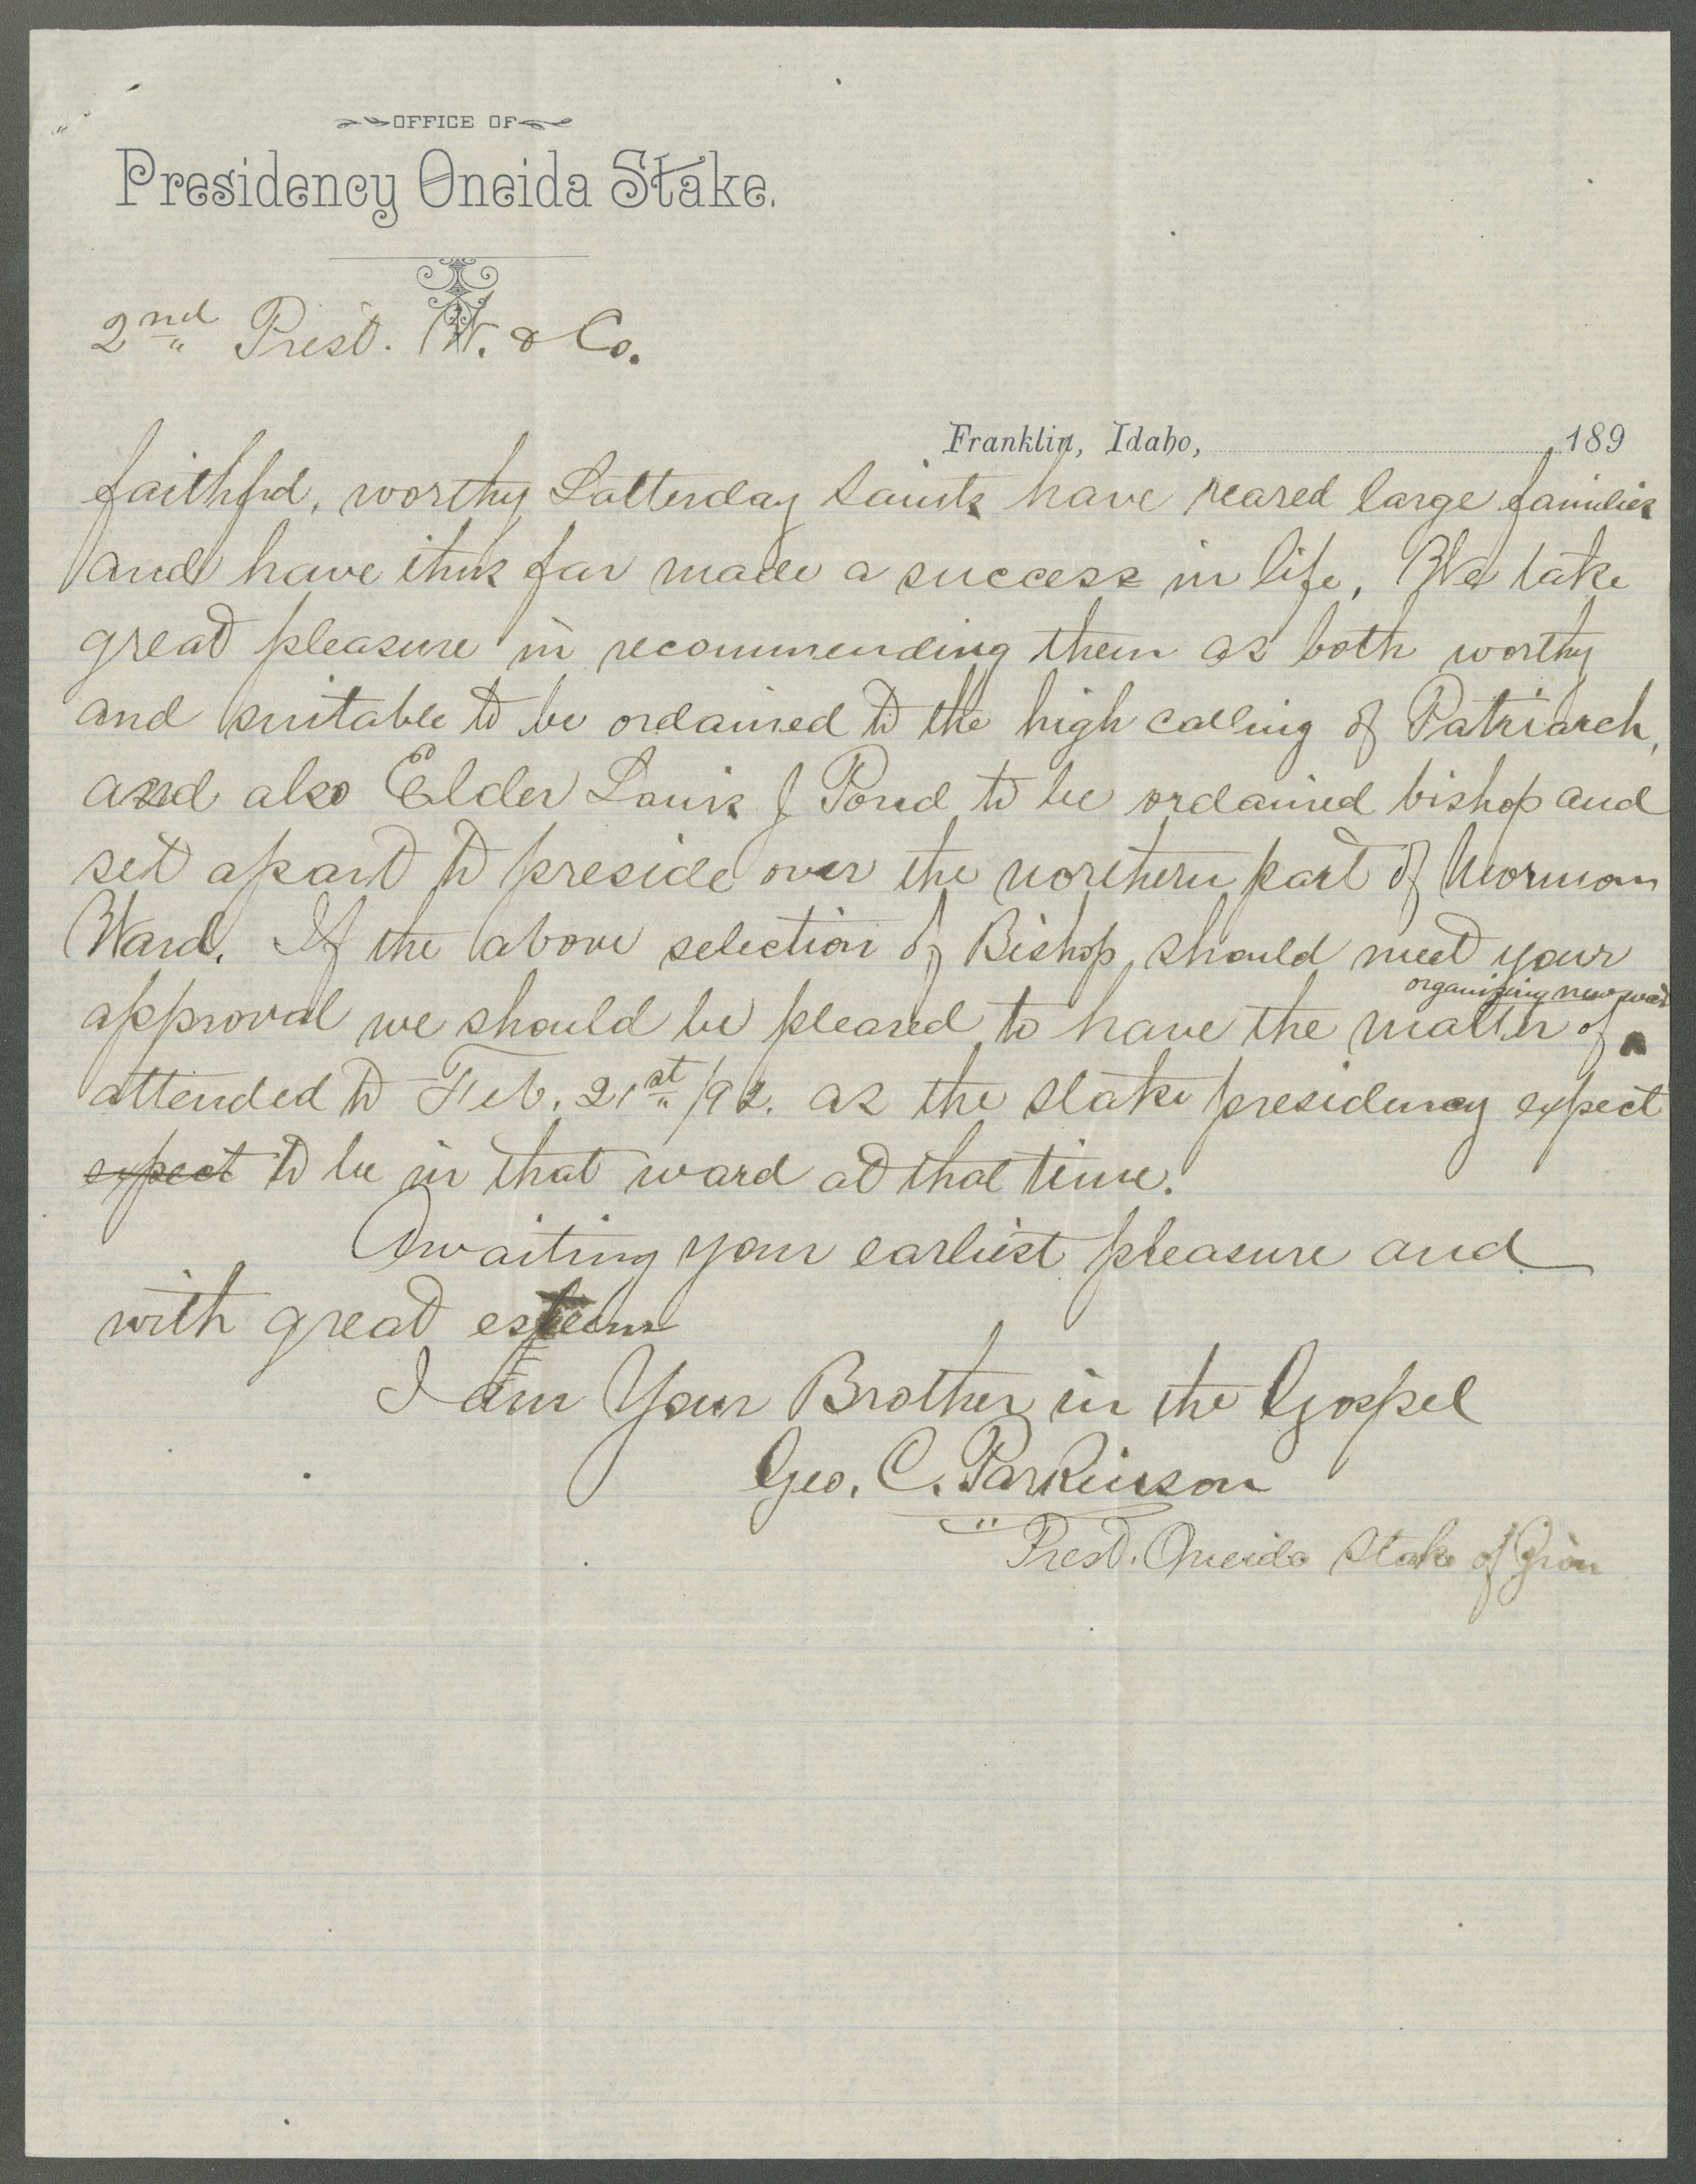 OFFICE OF
Presidency Oneida Stake.
2nd Prest. W. & Co.
Franklin, Idaho, 189
faithful, worthy Latterday Saints have reared large families
and have thus far made a success in life, We take
great pleasure in recommending them as both worthy
and suitable to be ordained to the high calling of Patriarch,
and also Elder Louis J Pond to be ordained bishop and
set apart to preside over the northern part of Mormon
Ward. If the above selection of Bishop, should meet your
organizing new ward
approval we should be pleased to have the matter of ^
attended to Feb. 21st/92. as the stake presidency expect
expect to be in that ward at that time.
Awaiting your earliest pleasure and
with great esteem
I am Your Brother in the Gospel
Geo. C. Parkinson
Prest. Oneida Stake of Zion